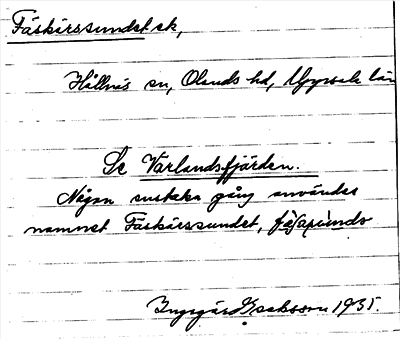 Fäskärssundet sk,
Hållnäs sn, Olands hd, Uppsala län
Se Varlandsfjärden.
Någon enstaka gång användes
namnet Fäskärssundet,
Ingegärd Isaksson 1935.